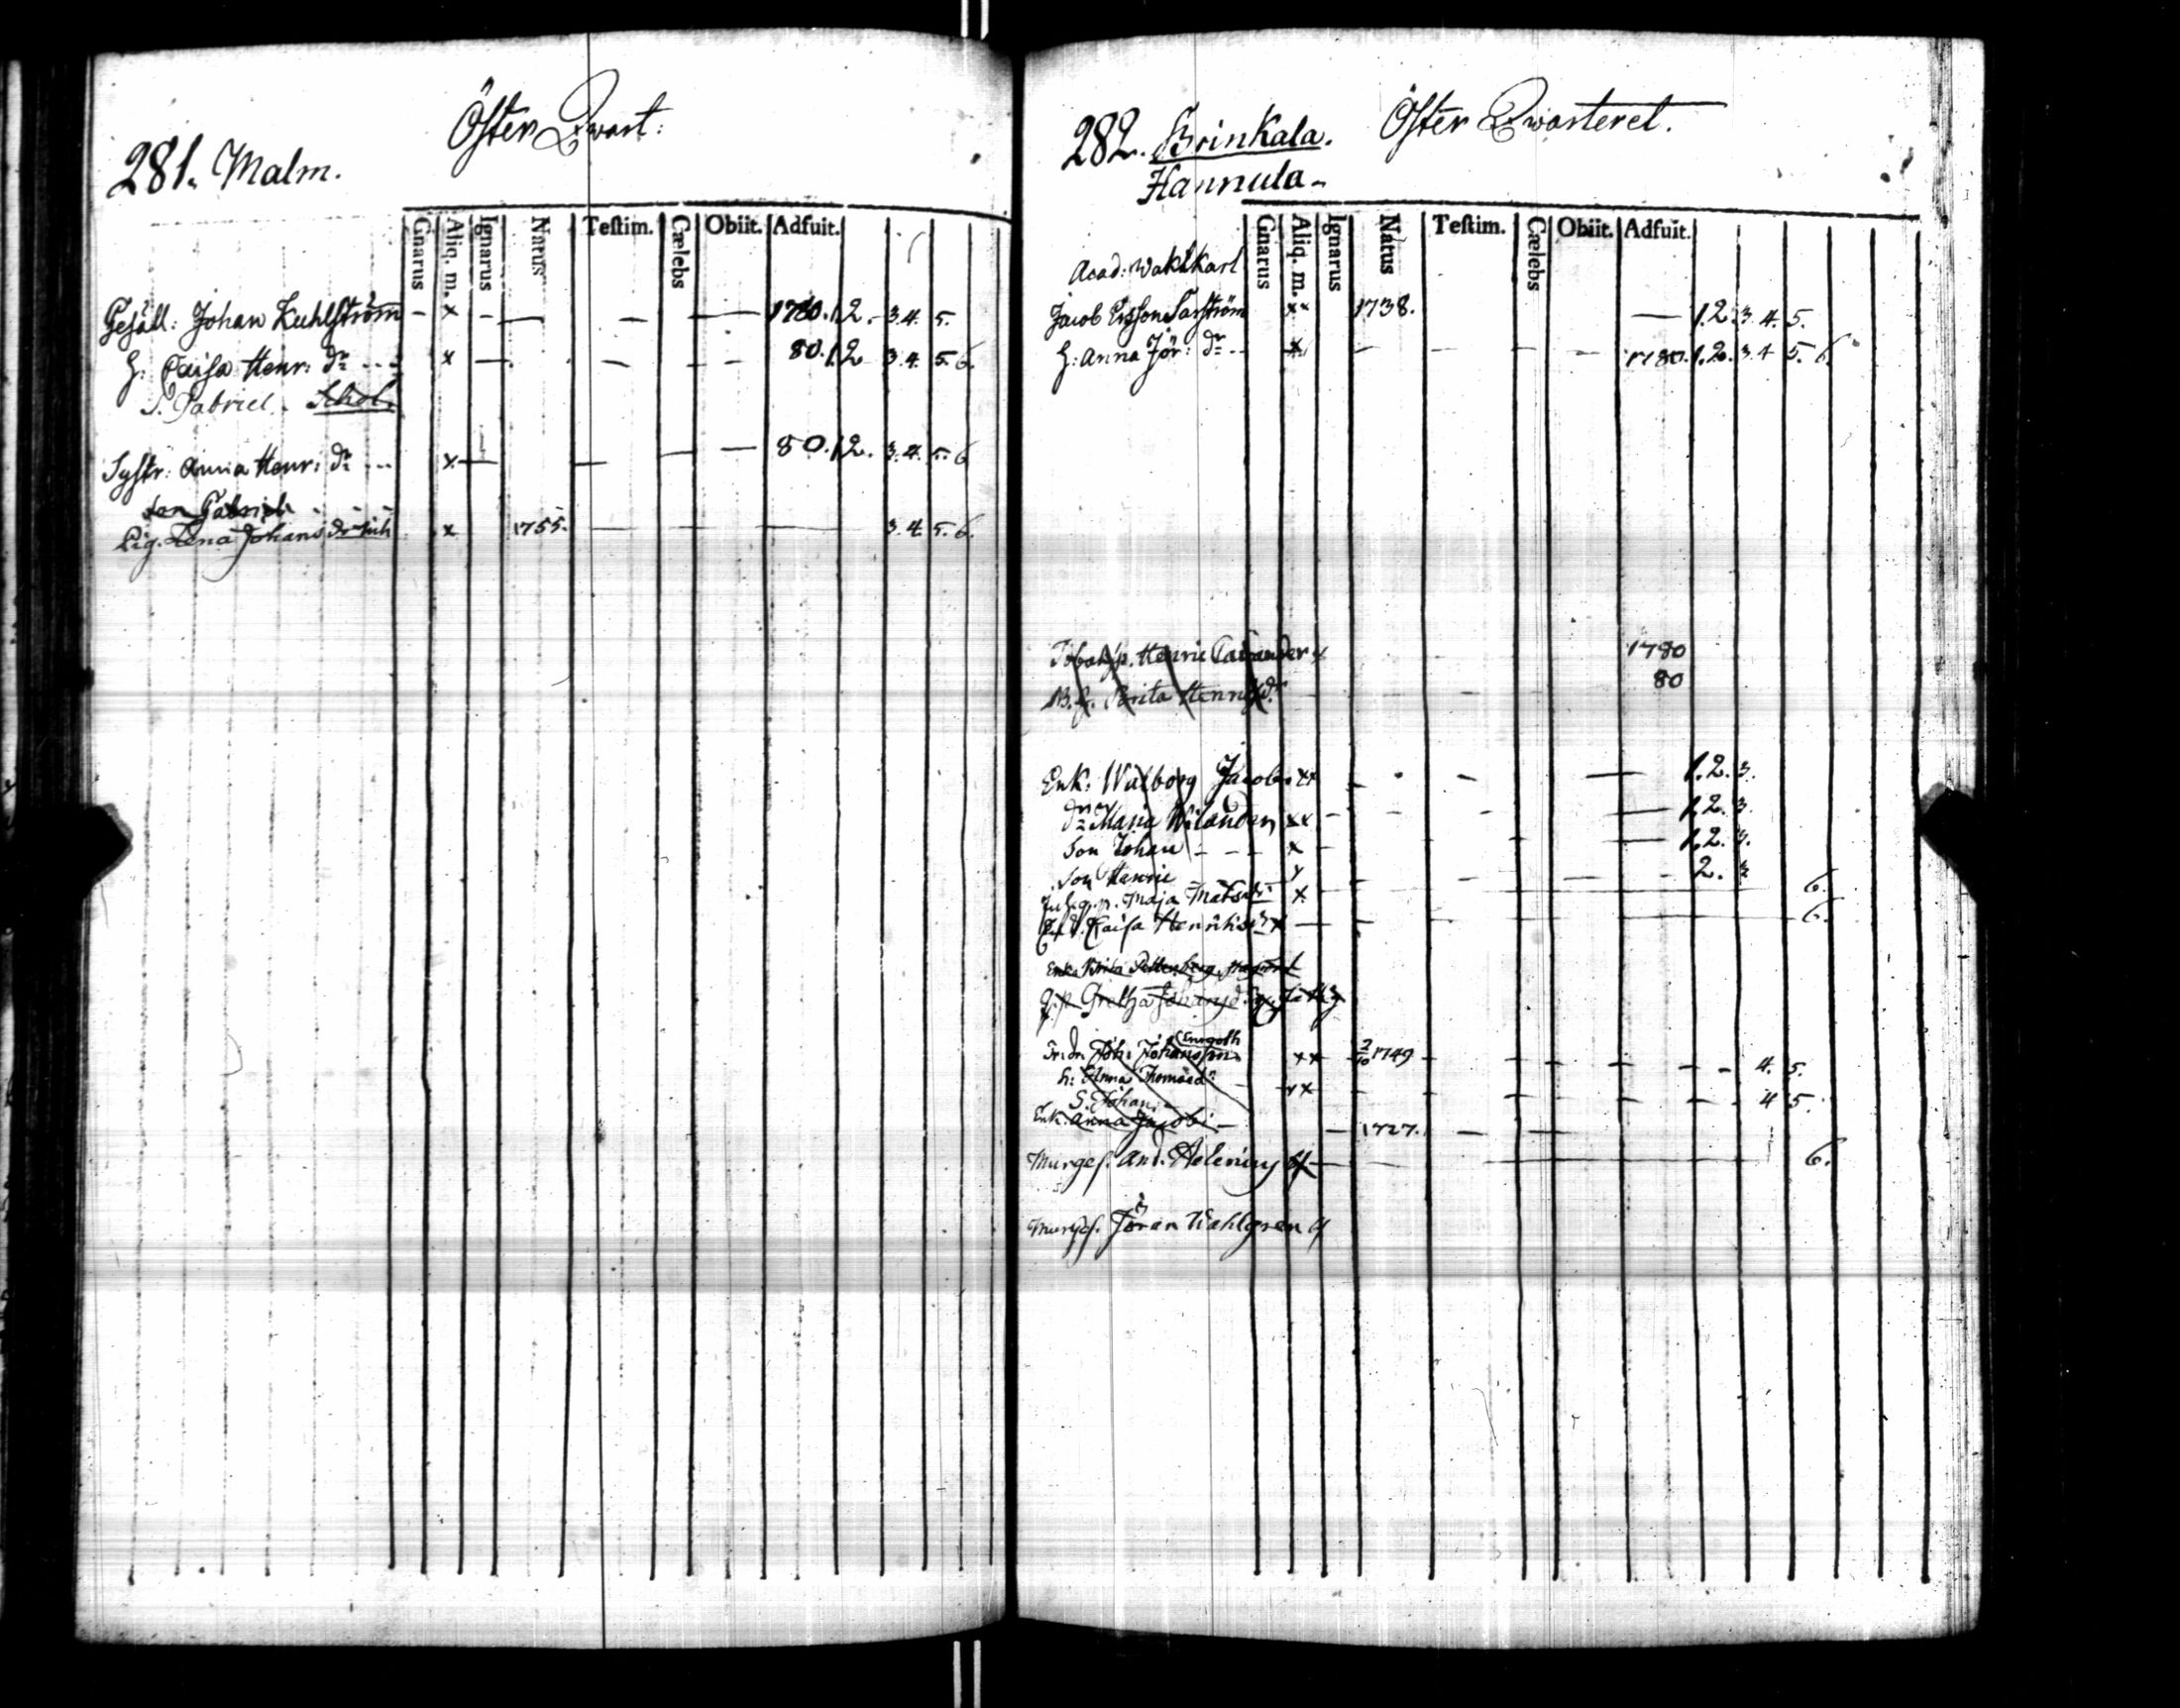 Öster Qwart:
281. Malm.
Gnarus Aliq. m. Ignarus Natus Testim. Cælebs Obiit. Adfuit.
Gesäll: Johan Kuhlström - x - 1780. 1. 2. 3. 4. 5.
H: Caisa Henr: dr x 80. 1. 2 3. 4. 5. 6.
S. Gabriel. Schol.
Systr: Anna Henr: dr x 80. 1. 2. 3. 4. 5. 6
Son Gabriel
Pig. Lena Johans dr x 1755. 3. 4. 5. 6.
Öster Qwarteret.
282. Brinkala.
Hannula
Gnarus Aliq. m. Ignarus Natus Testim. Cælebs Obiit. Adfuit.
Acad: Waktkarl
Jacob Ersson xx 1738. 1. 2. 3. 4. 5.
H: Anna Jör: dr x 1780. 1. 2. 3. 4 5. 6.
Henric x 1780
Brita Henr: dr 80
Enk: Walborg Jacobs xx 1. 2. 3.
dr Maja Wilander xx 1. 2. 3.
Son Johan x 1. 2. 3.
Son Henric 2. 3
Maja Mats dr x 6.
Caisa Henriks dr x 6.
Enka Brita
Gretha
Joh: Johansson xx 2/10 1749 4. 5.
h: Anna Thomæ dr xx 4 5.
S. Johan
Enk. Anna Jacobs 1727.
Murges. And. Helenius 6.
Murges. Jöran Wahlgren